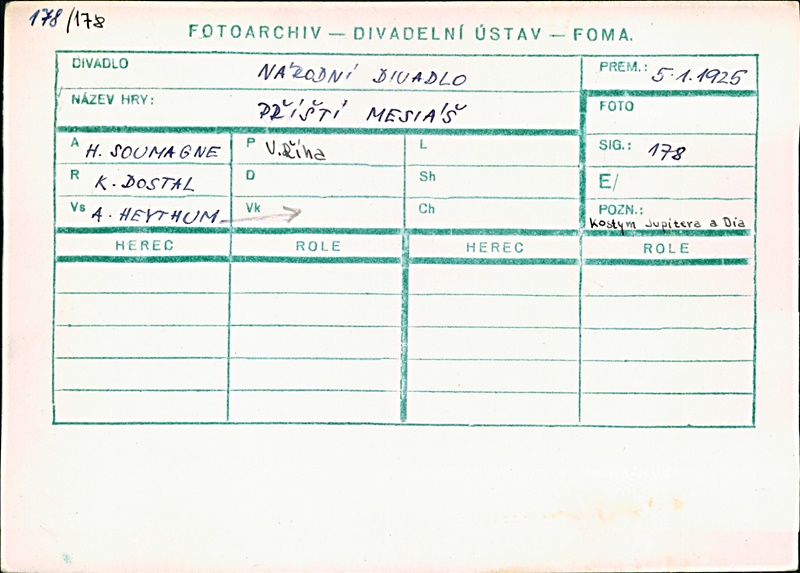 178/178
FOTOARCHIV — DIVADELNÍ ÚSTAV — FOMA.
DIVADLO NÁRODNÍ DIVADLO PREM.: 5.1.1925
NÁZEV HRY: PŘÍŠTÍ MESIÁŠ FOTO
A H. SOUMAGNE P V. Říha L SIG.: 178
R K. DOSTAL D Sh E/
Vs A. HEYTHUM Vk Ch POZN.: Kostym Jupitera a Dia
HEREC ROLE HEREC ROLE